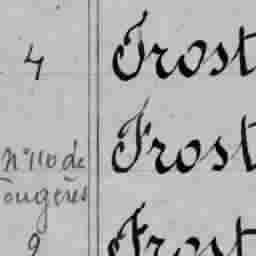 4 Frost
Nº 110 de Frost
Fougères
9 Frost